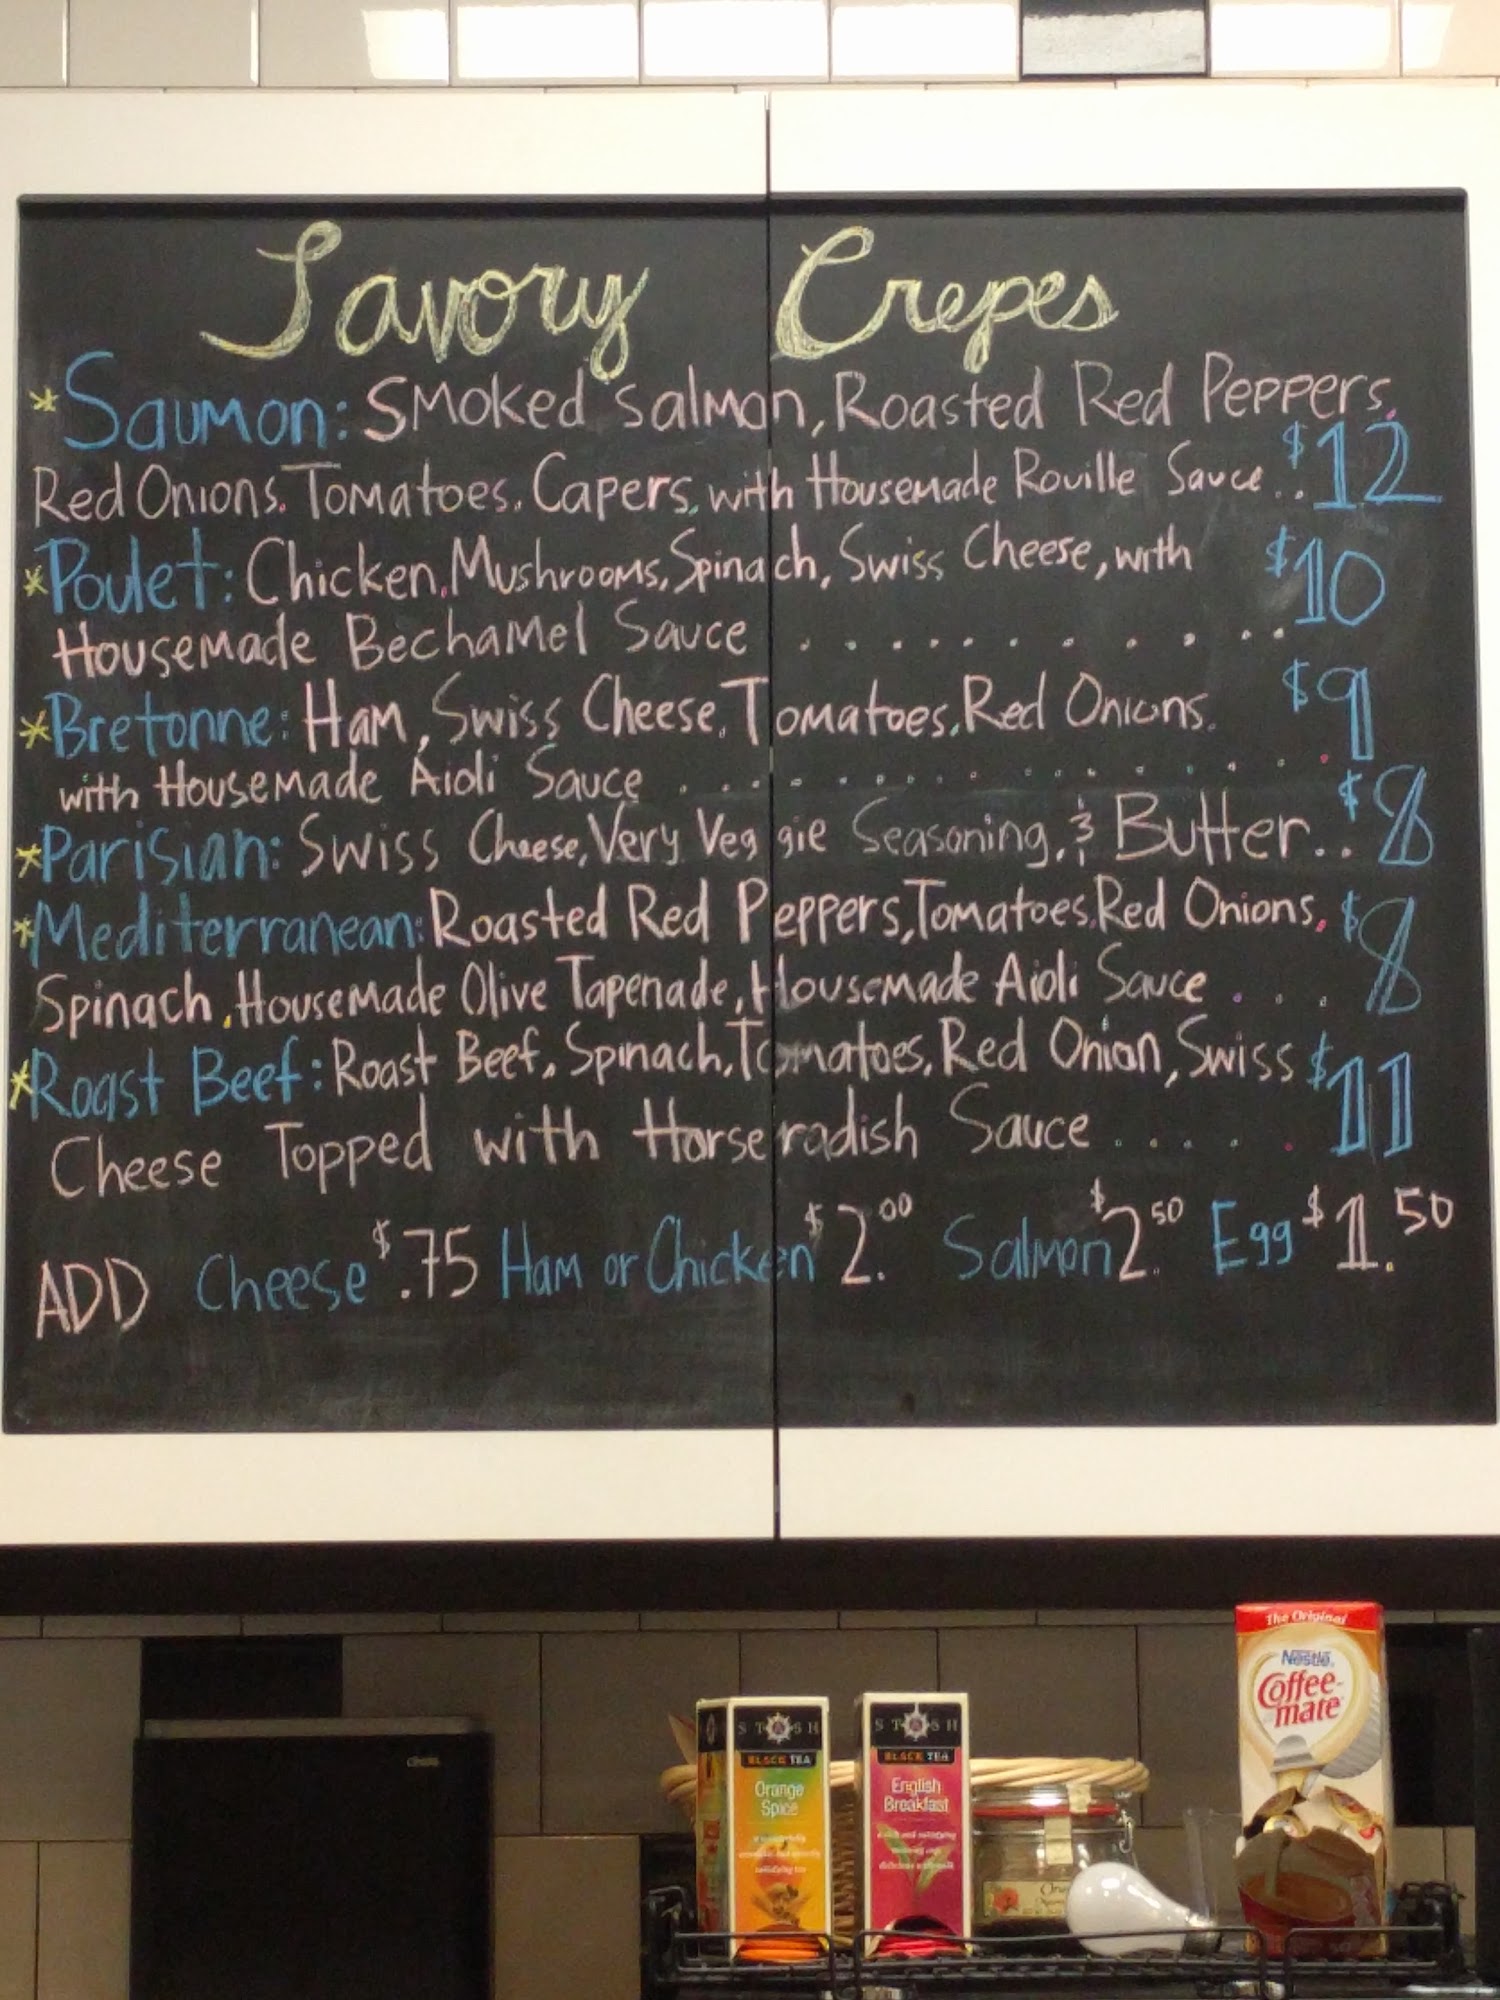 Savory Crepes
* Saumon: Smoked Salmon, Roasted Red Peppers,
Red Onions, Tomatoes, Capers, with Housemade Rouille Sauce.. $12
* Poulet: Chicken, Mushrooms, Spinach, Swiss Cheese, with
Housemade Bechamel Sauce . . . . . . . . . . $10
* Bretonne: Ham, Swiss Cheese, Tomatoes, Red Onions.
with Housemade Aioli Sauce . . . . . . . . . . . . . $9
* Parisian: Swiss Cheese, Very Veggie Seasoning, & Butter.. $8
* Mediterranean: Roasted Red Peppers, Tomatoes, Red Onions,
Spinach, Housemade Olive Tapenade, Housemade Aioli Sauce . . . . $8
* Roast Beef: Roast Beef, Spinach, Tomatoes, Red Onion, Swiss
Cheese Topped with Horseradish Sauce . . . . . . $11
ADD Cheese $.75 Ham or Chicken $2.00 Salmon $2.50 Egg $1.50
The Original
Nestle
Coffee-
mate
STASH
BLACK TEA
Orange
Spice
STASH
BLACK TEA
English
Breakfast